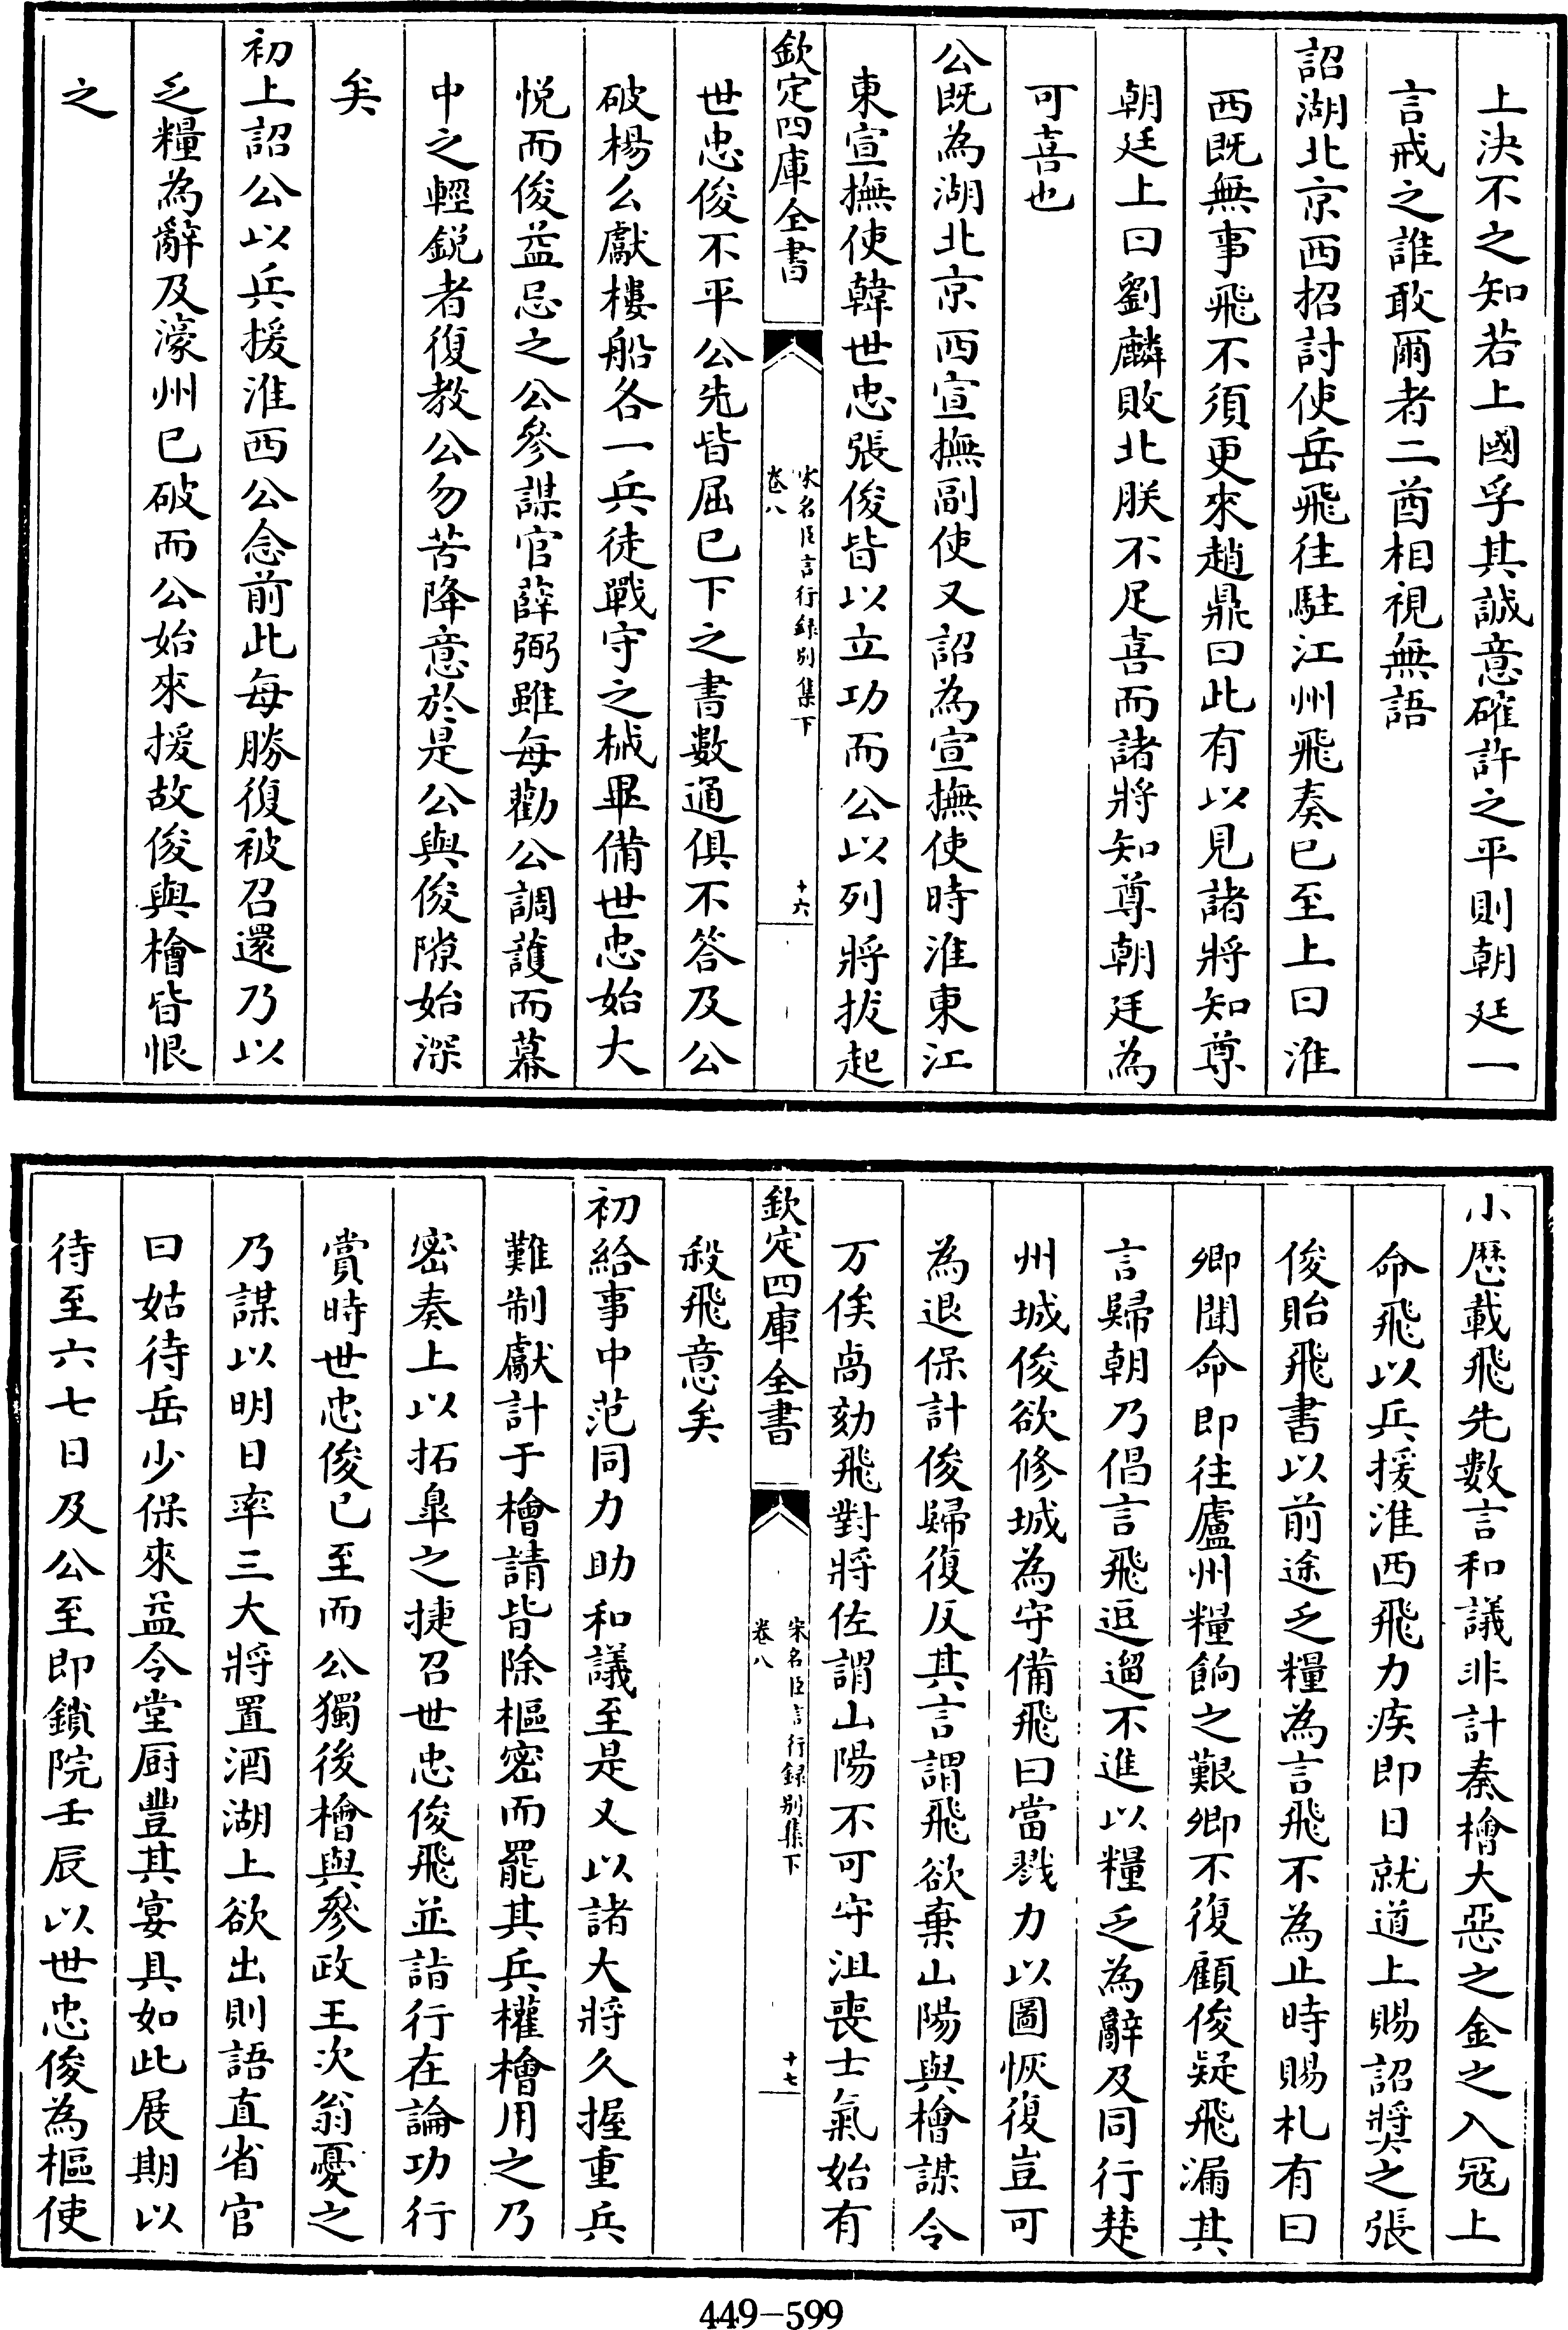 上決不之知若上國孚其誠意確許之平則朝廷一
言戒之誰敢爾者二酋相視無語
詔湖北京西招討使岳飛往駐江州飛奏已至上曰淮
西既無事飛不須更來趙鼎曰此有以見諸將知尊
朝廷上曰劉麟敗北朕不足喜而諸將知尊朝廷為
可喜也
公既為湖北京西宣撫副使又詔為宣撫使時淮東江
東宣撫使韓世忠張俊皆以立功而公以列將拔起
欽定四庫全書
宋名臣言行録别集下
卷八
十六
世忠俊不平公先皆屈已下之書數通俱不答及公
破楊么獻樓船各一兵徒戰守之械畢備世忠始大
悦而俊益忌之公參謀官薛弼雖每勸公調護而幕
中之輕鋭者復教公勿苦降意於是公與俊隙始深
矣
初上詔公以兵援淮西公念前此每勝復被召還乃以
乏糧為辭及濠州已破而公始來援故俊與檜皆恨
之
小厯載飛先數言和議非計秦檜大惡之金之入冦上
命飛以兵援淮西飛力疾即日就道上賜詔奬之張
俊貽飛書以前途乏糧為言飛不為止時賜札有曰
卿聞命即往廬州糧餉之艱卿不復顧俊疑飛漏其
言歸朝乃倡言飛逗遛不進以糧乏為辭及同行楚
州城俊欲修城為守備飛曰當戮力以圖恢復豈可
為退保計俊歸復反其言謂飛欲棄山陽與檜謀令
万俟卨劾飛對將佐謂山陽不可守沮喪士氣始有
欽定四庫全書
宋名臣言行録别集下
卷八
十七
殺飛意矣
初給事中范同力助和議至是又以諸大將久握重兵
難制獻計于檜請皆除樞密而罷其兵權檜用之乃
密奏上以拓皐之捷召世忠俊飛並詣行在論功行
賞時世忠俊已至而公獨後檜與參政王次翁憂之
乃謀以明日率三大將置酒湖上欲出則語直省官
曰姑待岳少保來益令堂厨豐其宴具如此展期以
待至六七日及公至即鎖院壬辰以世忠俊為樞使
449-599